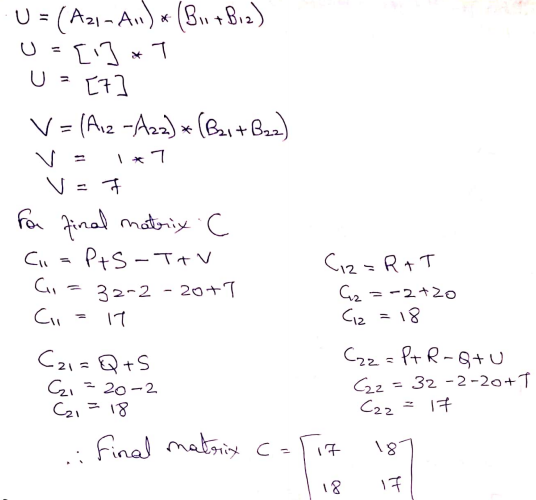 U = (A₂₁ - A₁₁) * (B₁₁ + B₁₂)
U = [1] * 7
U = [7]
V = (A₁₂ - A₂₂) * (B₂₁ + B₂₂)
V = 1 * 7
V = 7
For final matrix C
C₁₁ = P+S-T+V
C₁₁ = 32-2-20+7
C₁₁ = 17
C₁₂ = R+T
C₁₂ = -2+20
C₁₂ = 18
C₂₁ = Q+S
C₂₁ = 20-2
C₂₁ = 18
C₂₂ = P+R-Q+U
C₂₂ = 32-2-20+7
C₂₂ = 17
∴ Final matrix C = [17 18
18 17]